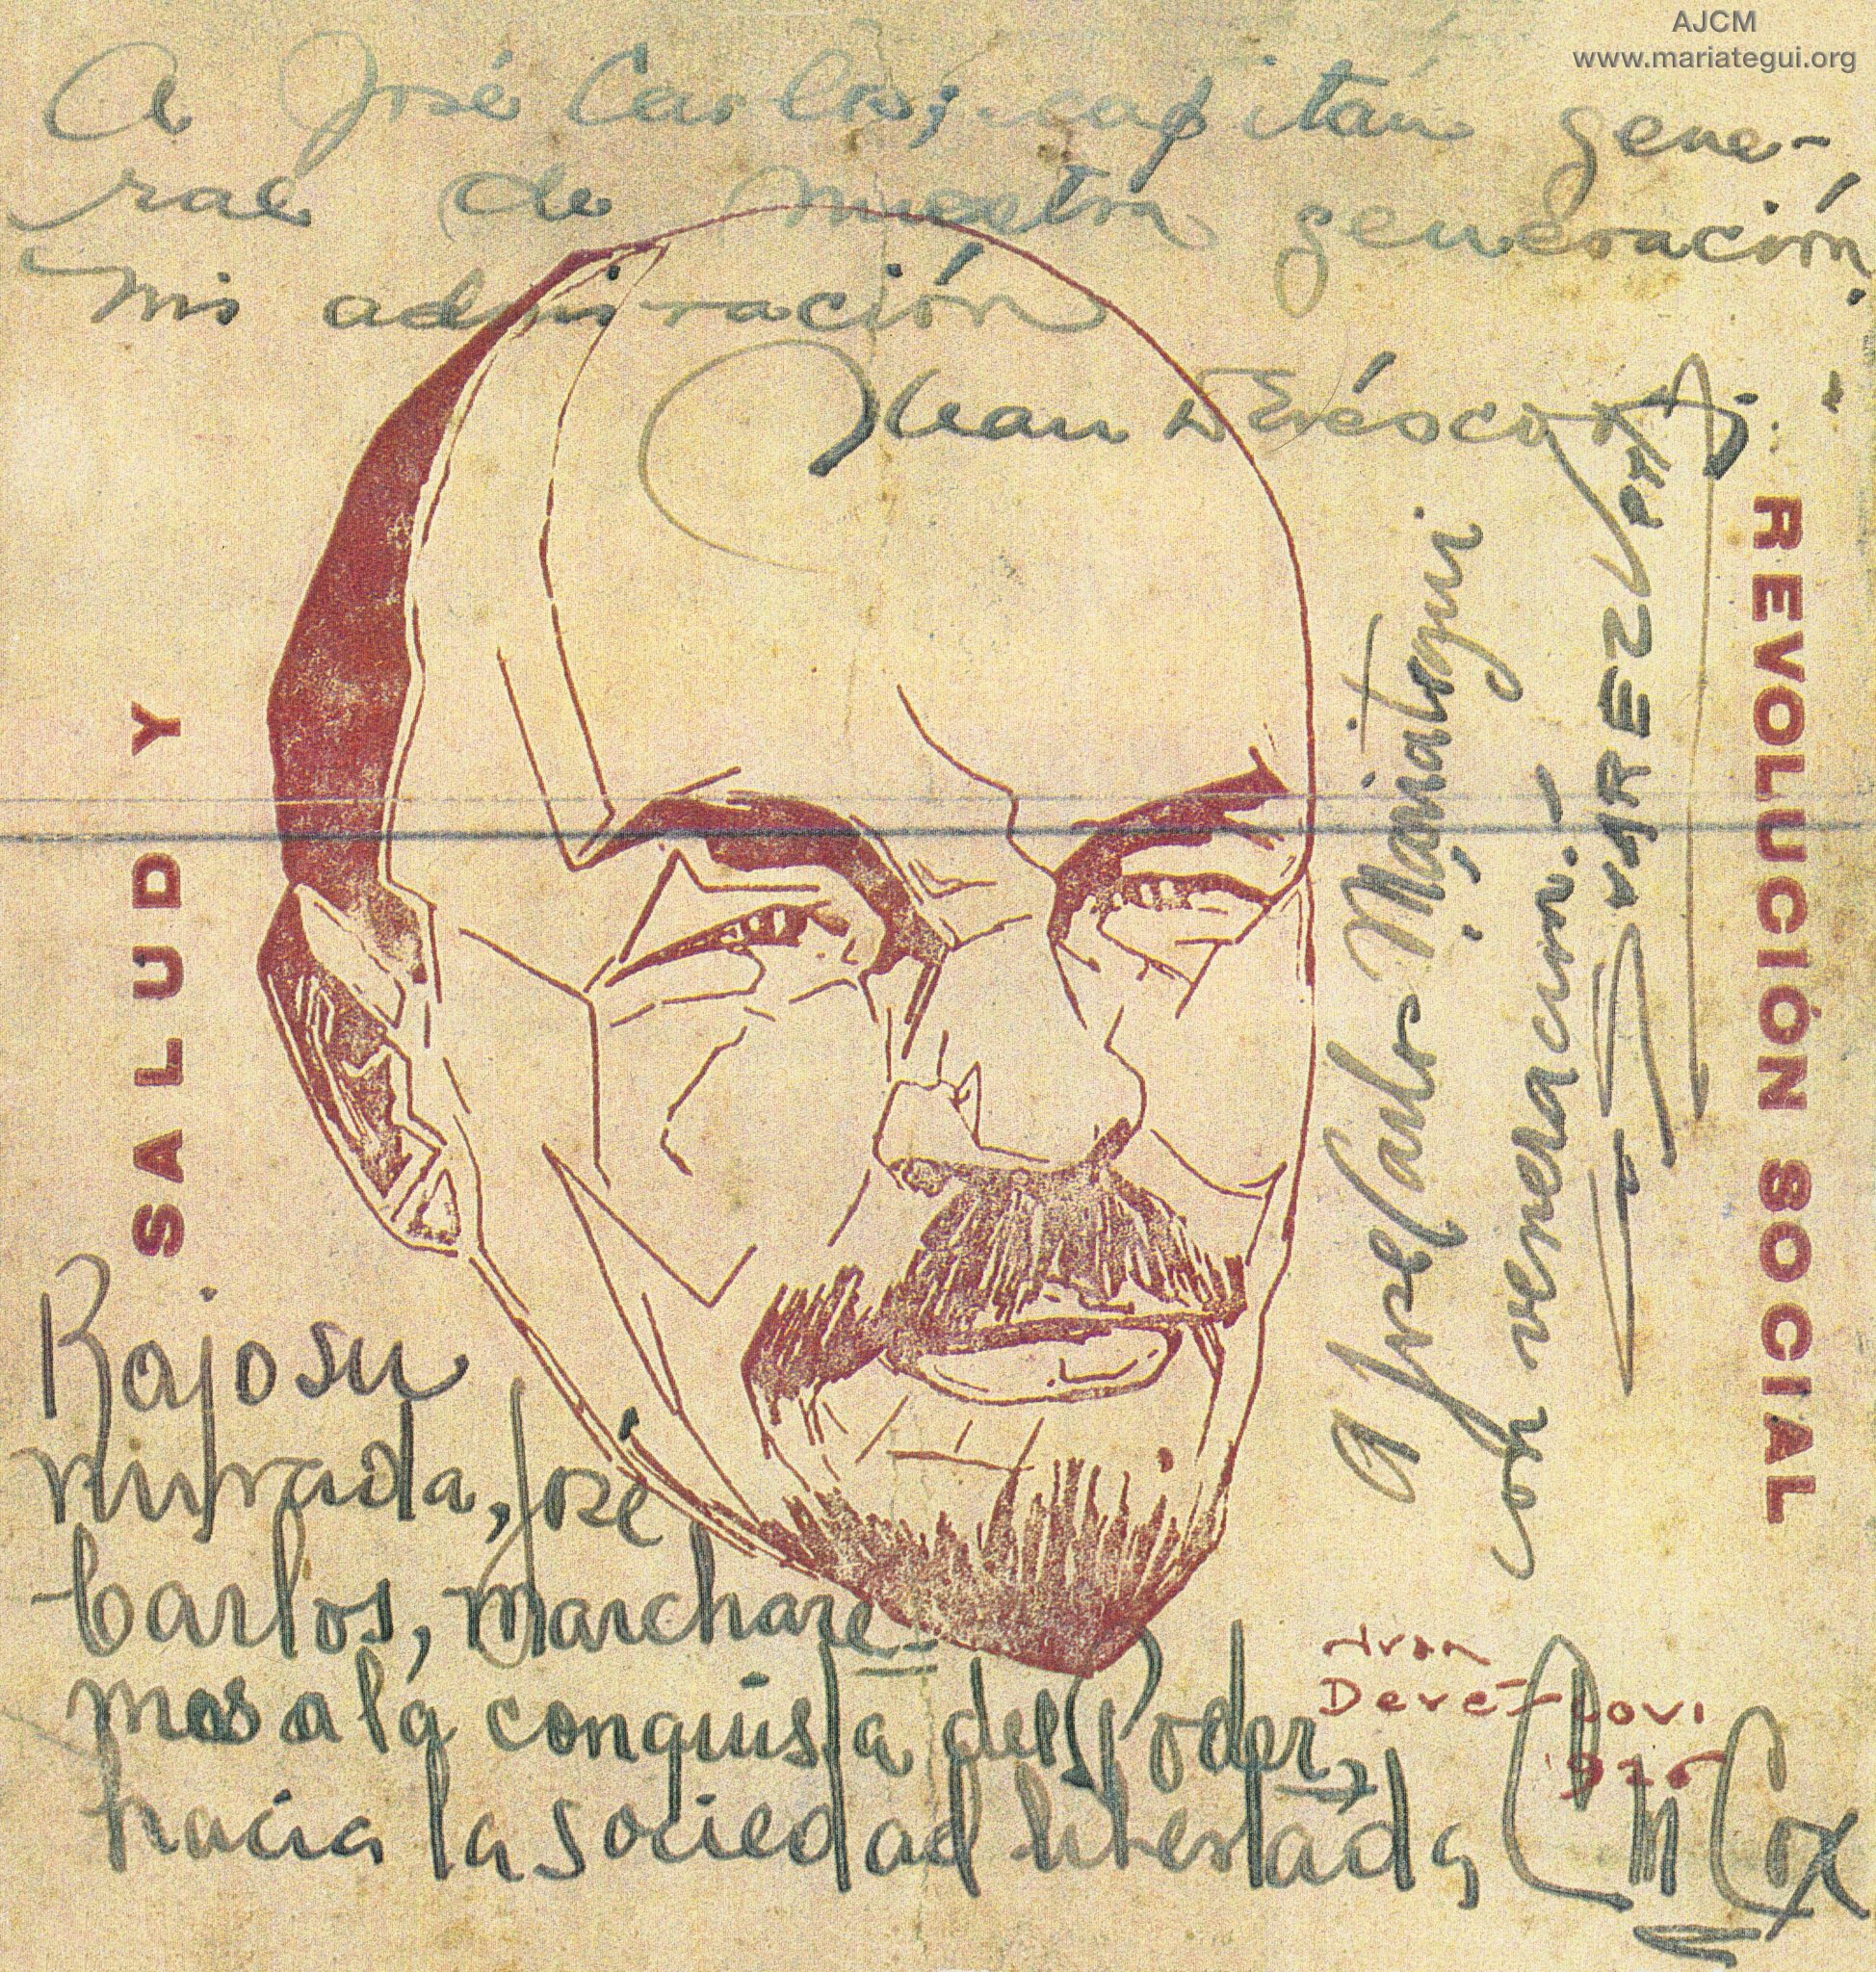 AJCM
www.mariategui.org
A José Carlos, capitán gene-
ral de nuestra generación,
mi admiración
Juan Devéscovi
SALUD Y
REVOLUCIÓN SOCIAL
A José Carlos Mariátegui
con veneración.
Bajo su
mirada, José
Carlos, marchare-
mos a la conquista del Poder,
hacia la sociedad libertada,
Cox
Juan
Devéscovi